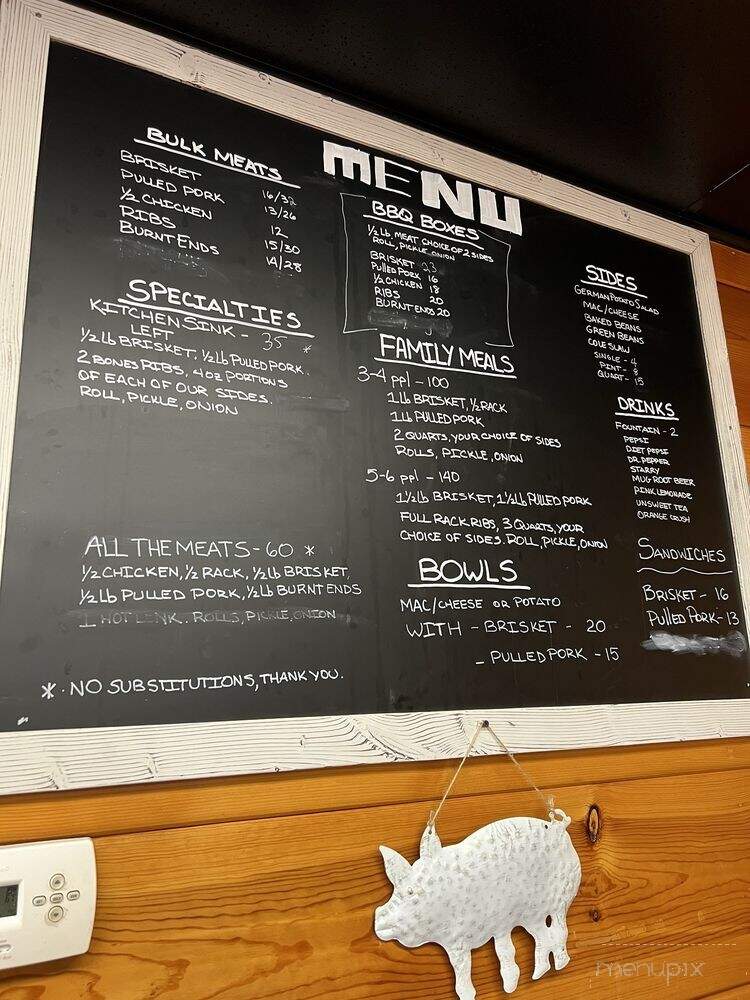 MENU
BULK MEATS
BRISKET 16/32
PULLED PORK 13/26
1/2 CHICKEN 12
RIBS 15/30
BURNT ENDS 14/28
SPECIALTIES
KITCHEN SINK - 35 *
LEFT
1/2 lb BRISKET, 1/2 lb PULLED PORK.
2 BONES RIBS, 4oz PORTIONS
OF EACH OF OUR SIDES.
ROLL, PICKLE, ONION
ALL THE MEATS - 60 *
1/2 CHICKEN, 1/2 RACK, 1/2 lb BRISKET,
1/2 lb PULLED PORK, 1/2 lb BURNT ENDS
1 HOT LINK. ROLLS, PICKLE, ONION
* . NO SUBSTITUTIONS, THANK YOU.
BBQ BOXES
1/2 lb. MEAT CHOICE OF 2 SIDES
ROLL, PICKLE, ONION
BRISKET 23
PULLED PORK 16
1/2 CHICKEN 18
RIBS 20
BURNT ENDS 20
FAMILY MEALS
3-4 ppl - 100
1 lb BRISKET, 1/2 RACK
1 lb PULLED PORK
2 QUARTS, YOUR CHOICE OF SIDES
ROLLS, PICKLE, ONION
5-6 ppl - 140
1 1/2 lb BRISKET, 1 1/2 lb PULLED PORK
FULL RACK RIBS, 3 QUARTS, YOUR
CHOICE OF SIDES. ROLL, PICKLE, ONION
BOWLS
MAC/CHEESE OR POTATO
WITH - BRISKET - 20
- PULLED PORK - 15
SIDES
GERMAN POTATO SALAD
MAC/CHEESE
BAKED BEANS
GREEN BEANS
COLE SLAW
SINGLE - 4
PINT - 8
QUART - 15
DRINKS
FOUNTAIN - 2
PEPSI
DIET PEPSI
DR. PEPPER
STARRY
MUG ROOT BEER
PINK LEMONADE
UNSWEET TEA
ORANGE CRUSH
SANDWICHES
BRISKET - 16
PULLED PORK - 13
menupix